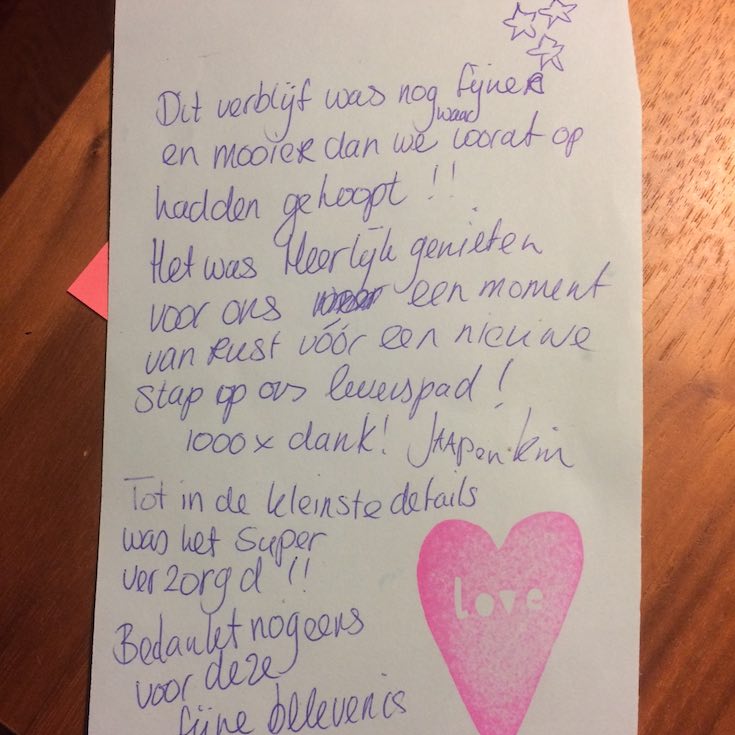 Dit verblijf was nog fijner
en mooier dan we waar vooraf op
hadden gehoopt !!
Het was Heerlijk genieten
voor ons een moment
van Rust vóór een nieuwe
stap op ons levenspad!
1000x dank! JAAP en Kim
Tot in de kleinste details
was het super
verzorgd !!
Bedankt nogeens
voor deze
fijne belevenis
love